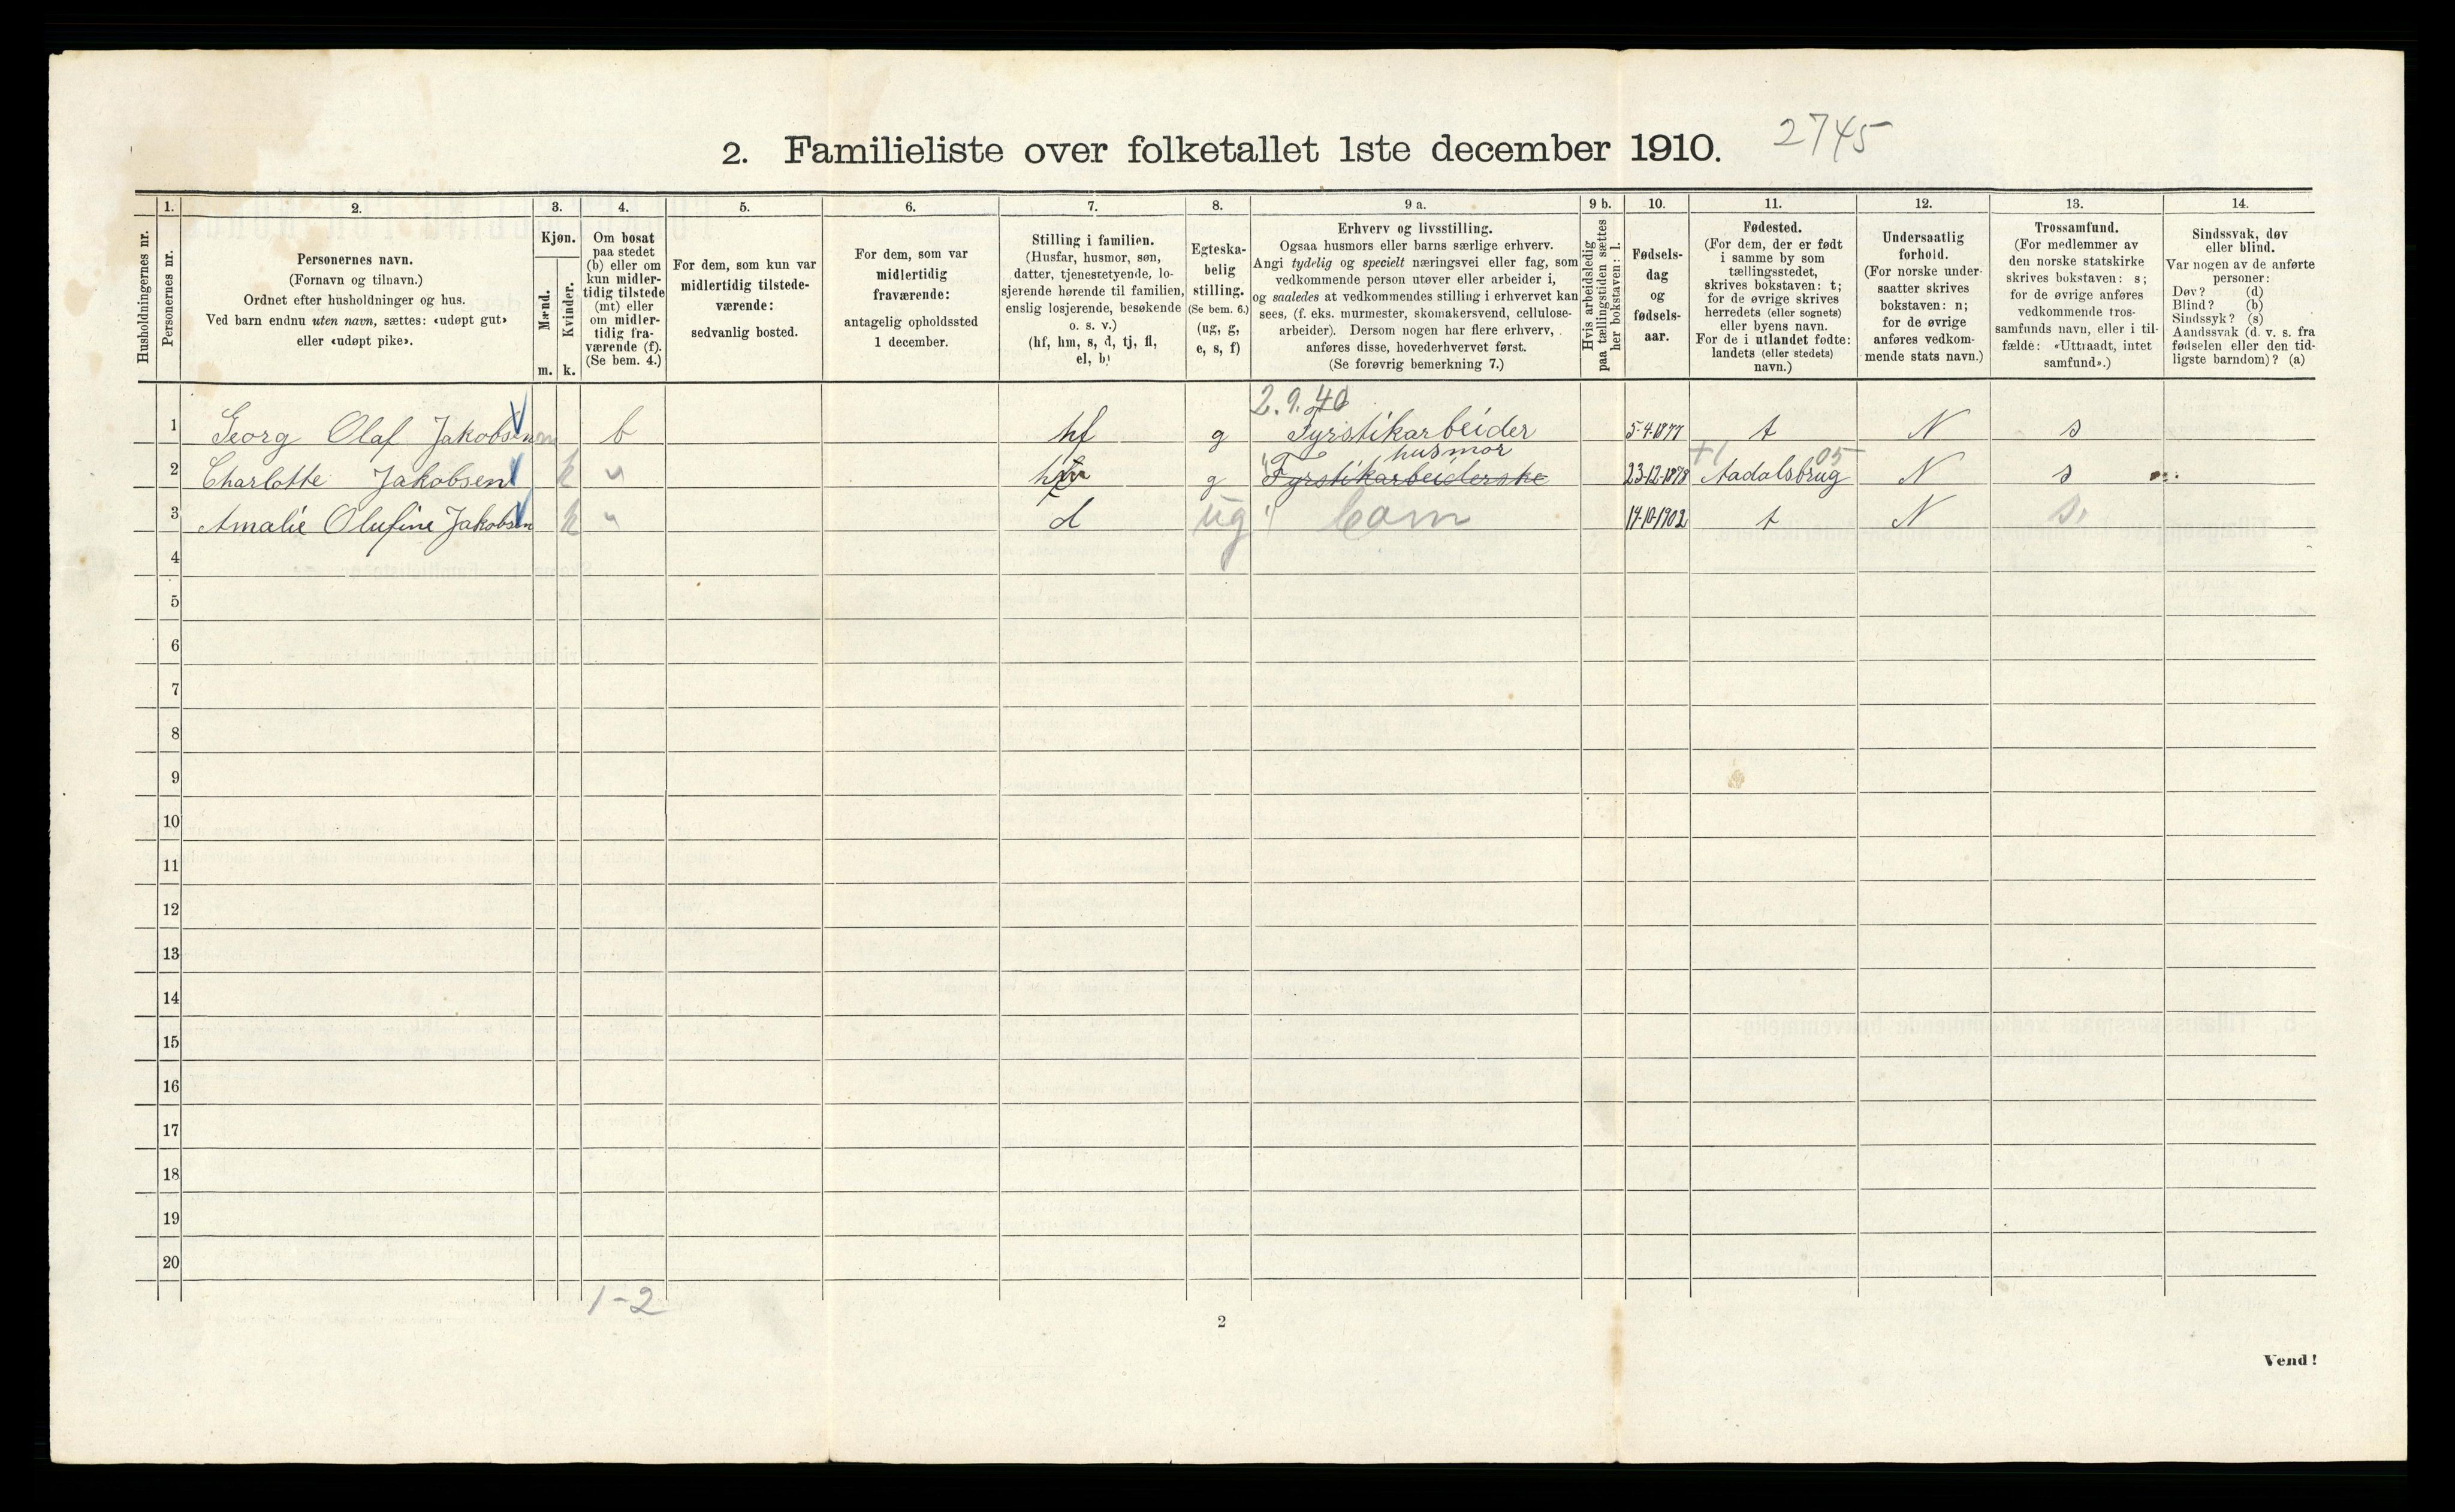 2. Familieliste over folketallet 1ste december 1910. 2745
Husholdningernes nr.
1.
Personernes nr.
2.
Personernes navn.
(Fornavn og tilnavn.)
Ordnet efter husholdninger og hus.
Ved barn endnu uten navn, sættes: «udøpt gut»
eller «udøpt pike».
3.
Kjøn.
Mænd.
m.
Kvinder.
k.
4.
Om bosat
paa stedet
(b) eller om
kun midler-
tidig tilstede
(mt) eller
om midler-
tidig fra-
værende (f).
(Se bem. 4.)
5.
For dem, som kun var
midlertidig tilstede-
værende:
sedvanlig bosted.
6.
For dem, som var
midlertidig
fraværende:
antagelig opholdssted
1 december.
7.
Stilling i familien.
(Husfar, husmor, søn,
datter, tjenestetyende, lo-
sjerende hørende til familien,
enslig losjerende, besøkende
o. s. v.)
(hf, hm, s, d, tj, fl,
el, b)
8.
Egteska-
belig
stilling.
(Se bem. 6.)
(ug, g,
e, s, f)
9 a.
Erhverv og livsstilling.
Ogsaa husmors eller barns særlige erhverv.
Angi tydelig og specielt næringsvei eller fag, som
vedkommende person utøver eller arbeider i,
og saaledes at vedkommendes stilling i erhvervet kan
sees, (f. eks. murmester, skomakersvend, cellulose-
arbeider). Dersom nogen har flere erhverv,
anføres disse, hovederhvervet først.
(Se forøvrig bemerkning 7.)
9 b.
Hvis arbeidsledig
paa tællingstiden sættes
her bokstaven: l.
10.
Fødsels-
dag
og
fødsels-
aar.
11.
Fødested.
(For dem, der er født
i samme by som
tællingsstedet,
skrives bokstaven: t;
for de øvrige skrives
herredets (eller sognets)
eller byens navn.
For de i utlandet fødte:
landets (eller stedets)
navn.)
12.
Undersaatlig
forhold.
(For norske under-
saatter skrives
bokstaven: n;
for de øvrige
anføres vedkom-
mende stats navn.)
13.
Trossamfund.
(For medlemmer av
den norske statskirke
skrives bokstaven: s;
for de øvrige anføres
vedkommende tros-
samfunds navn, eller i til-
fælde: «Uttraadt, intet
samfund».)
14.
Sindssvak, døv
eller blind.
Var nogen av de anførte
personer:
Døv? (d)
Blind? (b)
Sindssyk? (s)
Aandssvak (d. v. s. fra
fødselen eller den tid-
ligste barndom)? (a)
2.9.40
1 Georg Olaf Jakobsen m b hf g Fyrstikarbeider 5-4-1877 t N s
husmor +1 05
2 Charlotte Jakobsen k " hm g Fyrstikarbeiderske 23-12-1878 Aadalsbrug N s
3 Amalie Olufine Jakobsen k " d ug Barn 14-10-1902 t N s
4
5
6
7
8
9
10
11
12
13
14
15
16
17
18
19
20
1-2
2
Vend!